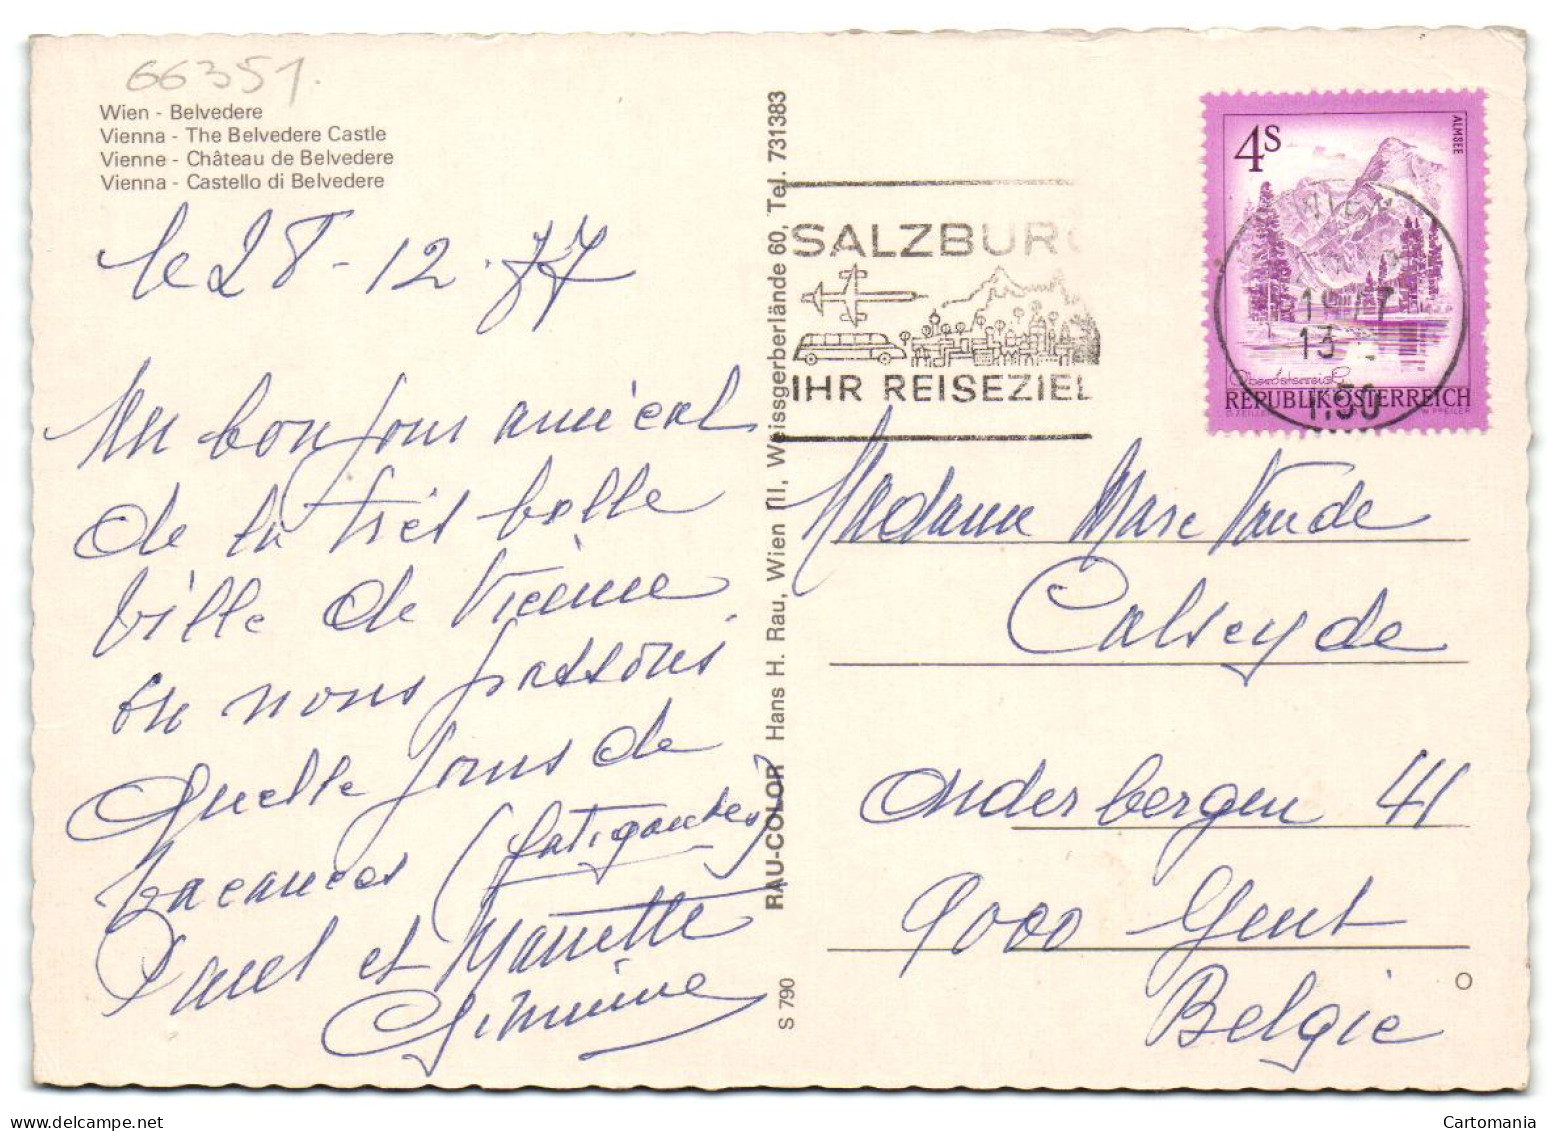 66351.
Wien - Belvedere
Vienna - The Belvedere Castle
Vienne - Château de Belvedere
Vienna - Castello di Belvedere
le 28-12-77
Un bonjour amical
de la très belle
Ville de Vienne
où nous passons
quelle jours de
vacances (fatigantes)
Paul et Mariette
RAU-COLOR Hans H. Rau, Wien III, Weissgerberlände 60, Tel. 731383
S 790
SALZBURG
IHR REISEZIEL
4S
ALMSEE
Oberösterreich
REPUBLIK ÖSTERREICH
WIEN
1977
13
1150
Madame Marc Vande
Calseyde
Onderbergen 41
9000 Gent
Belgie
delcampe.net
Cartomania